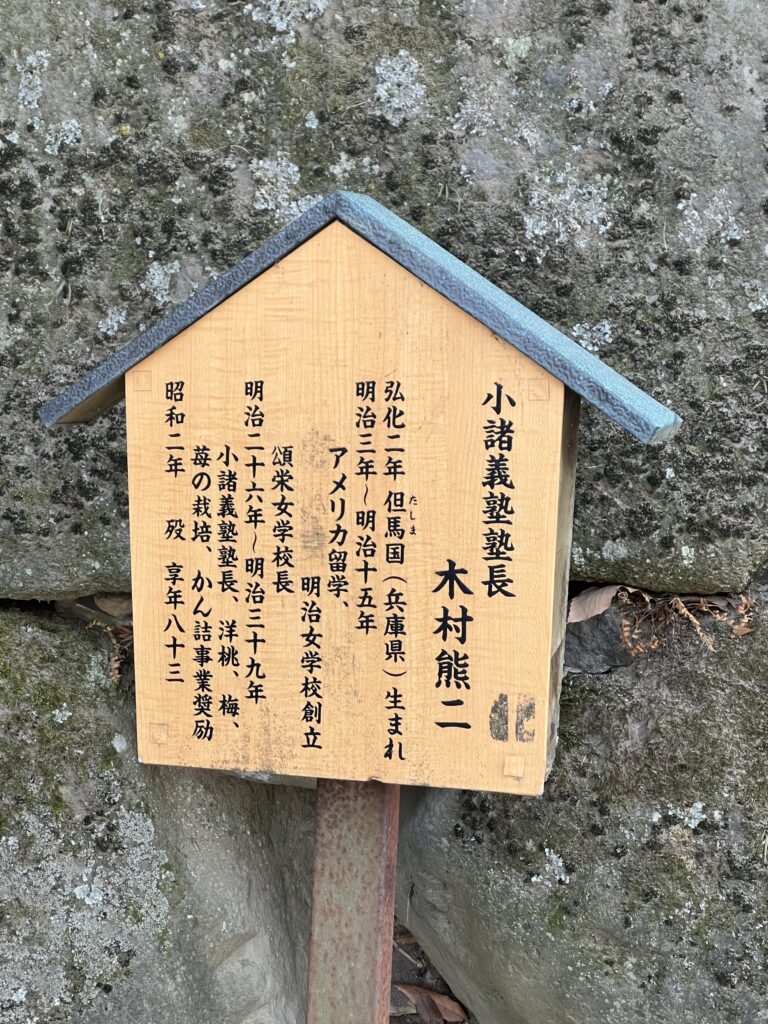 小諸義塾塾長
木村熊二
弘化二年 但馬国（兵庫県）生まれ
たじま
明治三年～明治十五年
アメリカ留学、
明治女学校創立
頌栄女学校長
明治二十六年～明治三十九年
小諸義塾塾長、洋桃、梅、
苺の栽培、かん詰事業奨励
昭和二年 歿 享年八十三